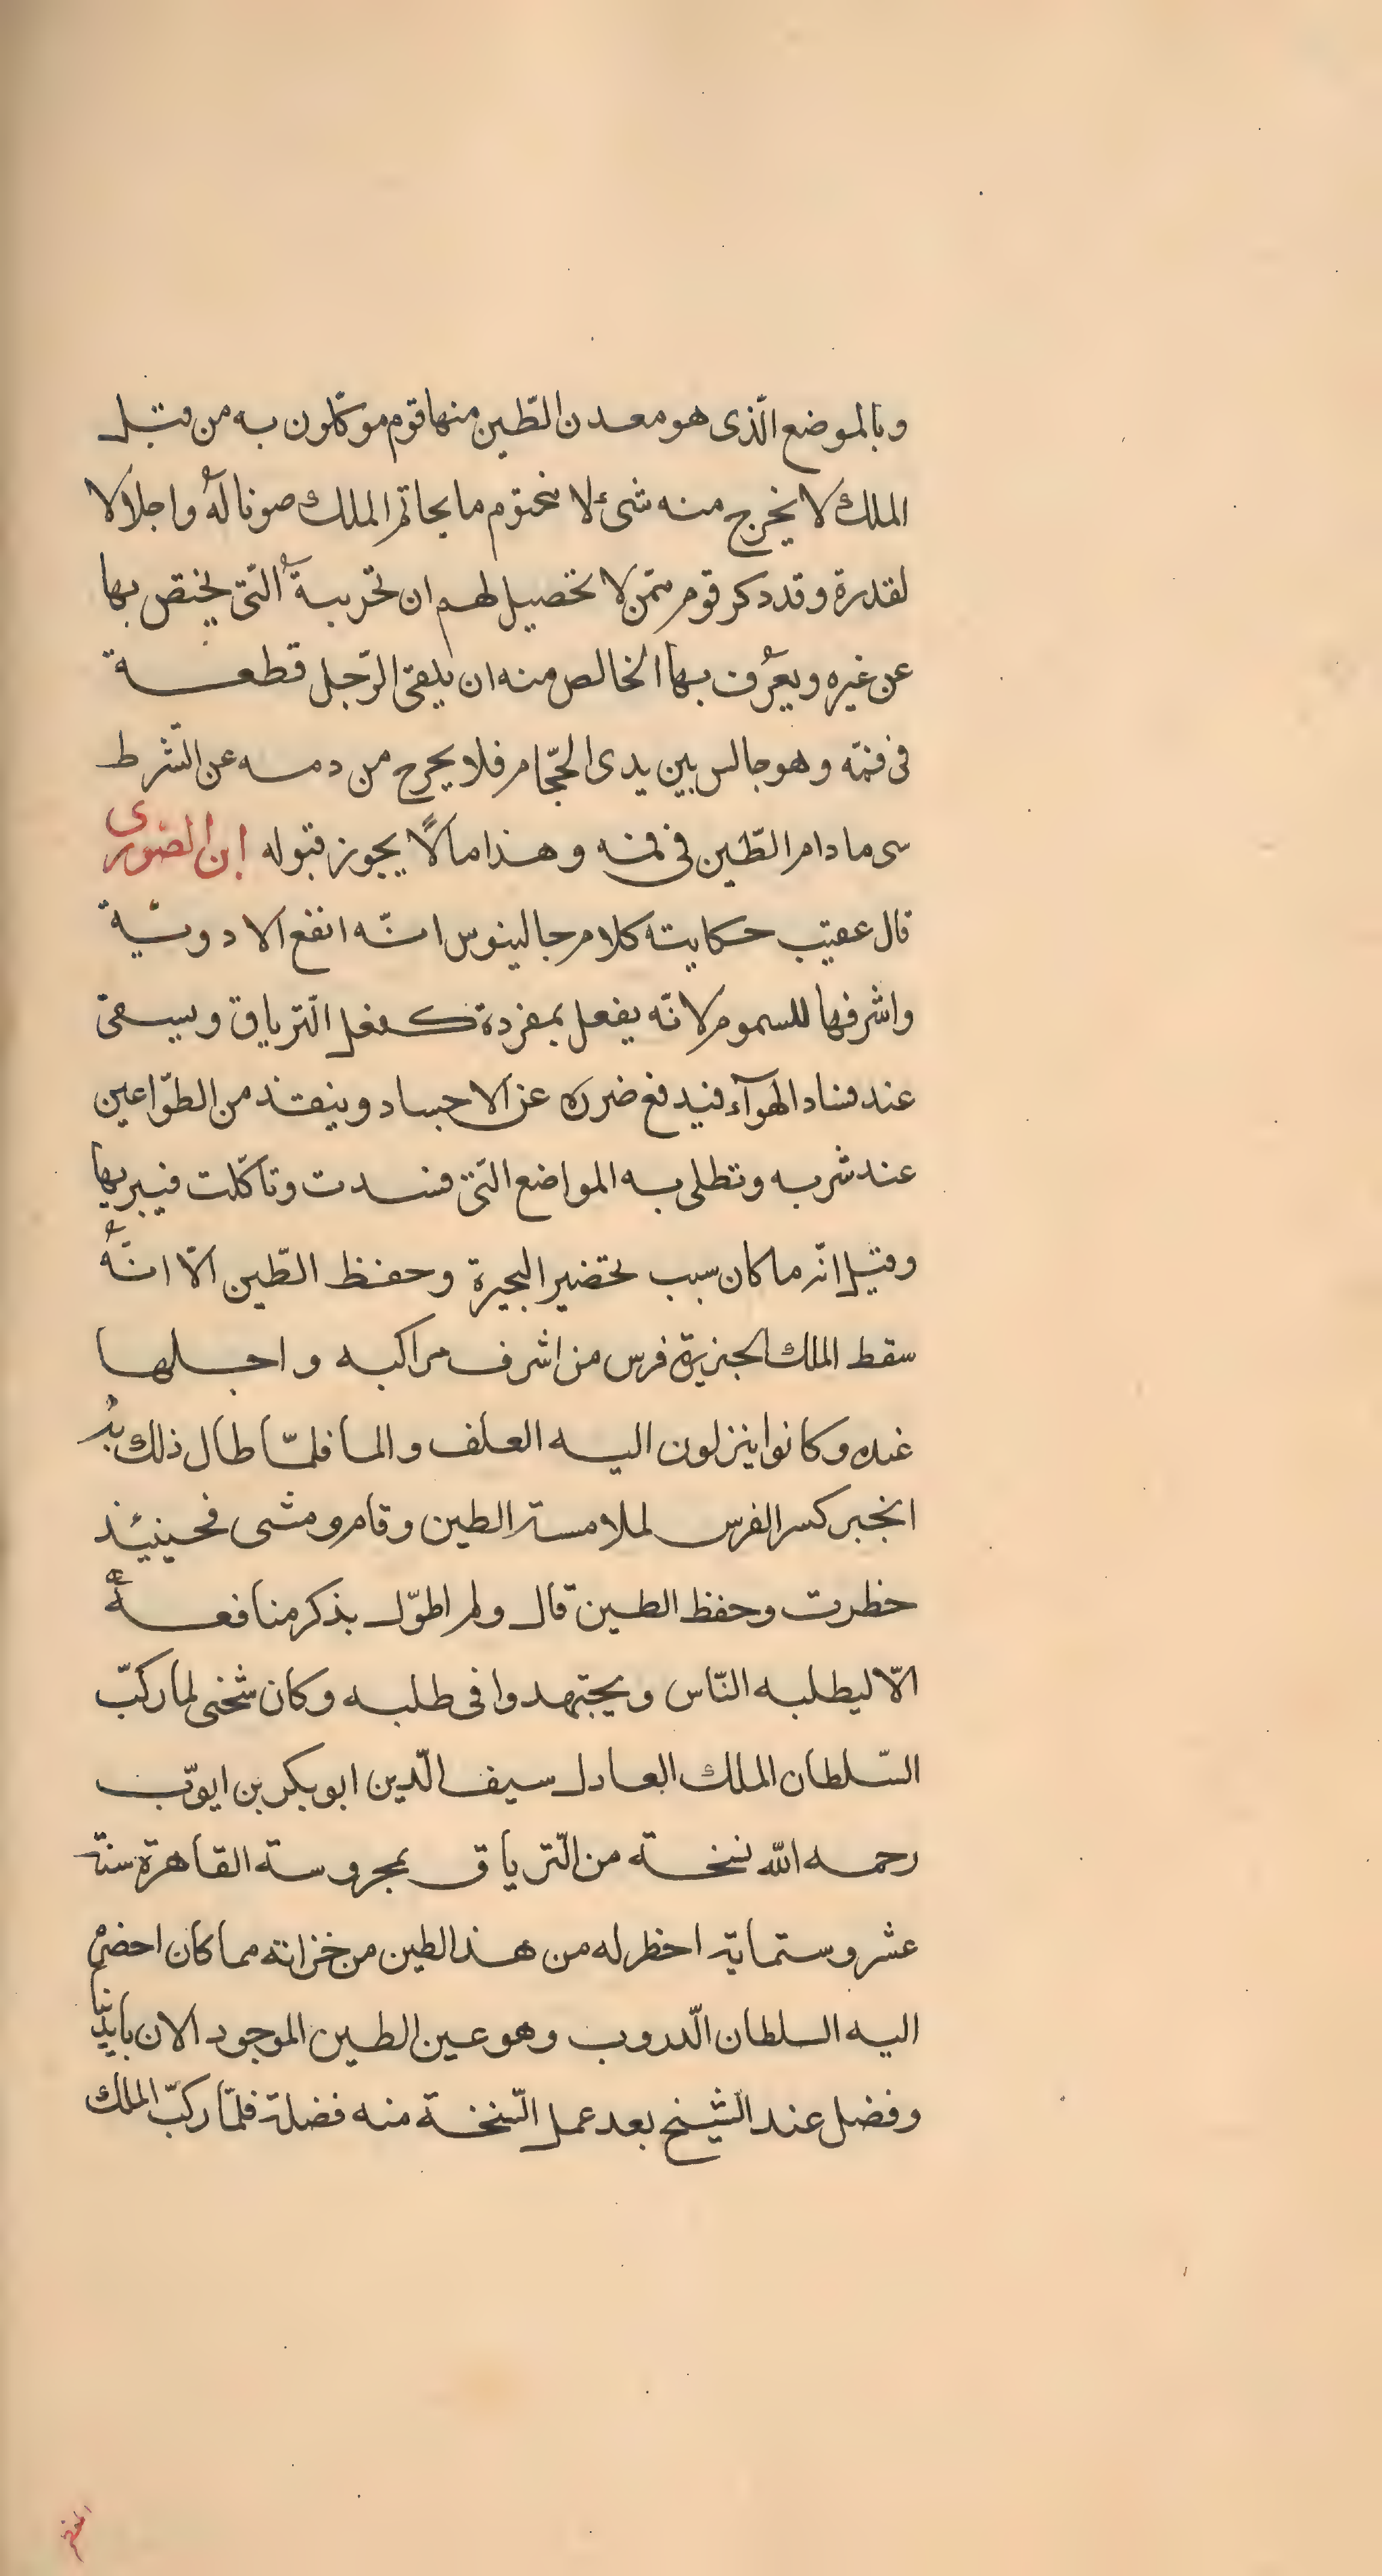 وبالموضع الّذى هو معدن الطّين منها قوم موكّلون به من قبل
الملك لا يخرج منه شىء لا مختوم ما بخاتم الملك صونا لهُ واجلالا
لقدرة وقد دكر قوم ممّن لا تحصيل لهم ان تجربيةَ الّتى يختص بها
عن غيره ويعرُف بها الخالص منه ان يلقى الرّجل قطعة
فى فمّه وهو جالس بين يدى الحجّام فلا يخرج من دمه عن الشّرط
سى مادام الطّين فى فمه وهذا مالاً يجوز قبوله ابن الصّورى
قال عقيب حكايته كلام جالينوس انّه انفع الادوية
واشرفها للسموم لانّه يفعل بمفردة كفعل التّرياق ويسقى
عند فساد الهوآء فيدفع ضرره عن الاجساد وينقذ من الطّواعين
عند شربه وتطلى به المواضع الّتى فسدت وتاكّلت فيبريها
وقيل انّه ما كان سبب تحضير البحيرة وحفظ الطّين الّا انّهُ
سقط الملك الجزيرة فرس من اشرف مراكبه واجلها
عنده وكانوا ينزلون اليه العلف والما فلمّا طال ذلك بهُ
انجبر كسر الفرس لملامسة الطين وقام ومشى فحينيئذ
حظرت وحفظ الطين قال ولم اطوّل بذكر منافعهُ
الّا ليطلبه النّاس ويجتهدوا فى طلبه وكان شخى لما ركبّ
السّلطان الملك العادل سيف الّدين ابو بكر بن ايوّب
رحمه اللّه نسخة من التّرياق بمحروسة القاهرة سنة
عشر وستماية احظر له من هذا الطين من خزانته مما كان احضرهُ
اليه السلطان الّدروب وهو عين الطين الموجود الان بايدّينا
وفضل عند الشّيخ بعد عمل النّسخة منه فضلة فلمّا ركبّ الملك